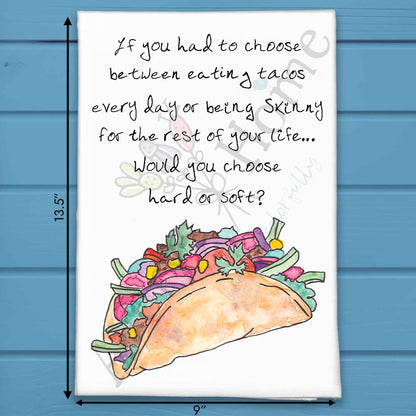 If you had to choose
between eating tacos
every day or being skinny
for the rest of your life...
Would you choose
hard or soft?
13.5"
9"
Home